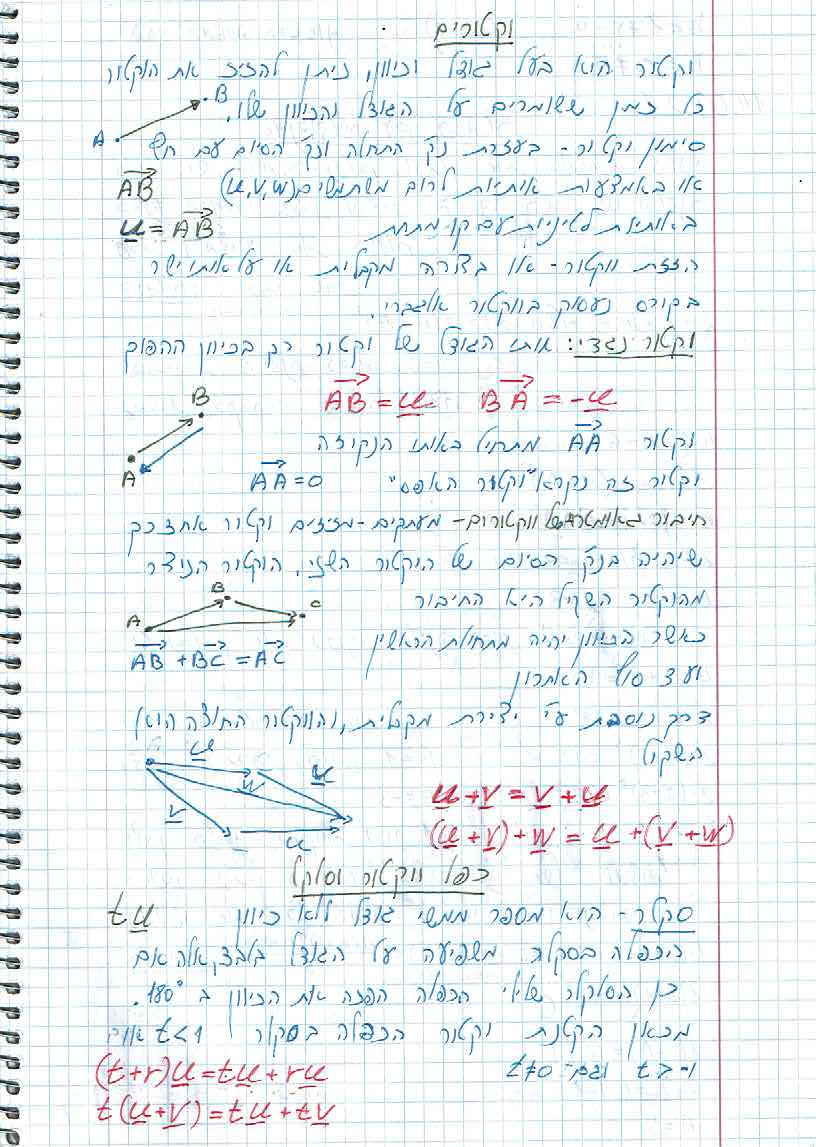 וקטורים
וקטור הוא בעל גודל וכיוון, ניתן להזיז את הוקטור
כל זמן ששומרים על הגודל והכיוון שלו.
A B
סימון וקטור - בעזרת נק' התחלה ונק' הסיום עם חץ
AB
או באמצעות אותיות לרוב משתמשים ב(u,v,w)
באותיות לטיניות עם קו מתחת
u = AB
הזזת ווקטור - או בצורה מקבילית או על אותו ישר
בקורס נעסוק בווקטור אלגברי.
וקטור נגדי: אותו הגודל של וקטור רק בכיוון ההפוך
AB = u BA = -u
B
A
וקטור AA מתחיל באותו הנקודה
וקטור זה נקרא "וקטור האפס" AA = 0
חיבור גאומטרי של ווקטורים - מעתקים - מזיזים וקטור אחד כך
שיהיה בנק' הסיום של הוקטור השני. הוקטור הנוצר
מהוקטור השקול היא החיבור
A B C
כאשר הכיוון יהיה מתחילת הראשון
AB + BC = AC
ועד סוף האחרון
דרך נוספת ע"י יצירת מקבילית, והווקטור החוצה הוא
השקול
u
w v
v
u
u+v = v+u
(u+v)+w = u+(v+w)
כפל ווקטור וסקלר
סקלר - הוא מספר ממשי גודל ללא כיוון tu
הכפלה בסקלר משפיעה על הגודל בלבד, אלא אם
כן הסקלר שלילי הכפלה הפכה את הכיוון ב 180°.
מכאן הקטנת וקטור הכפלה בסקלר t<1
t≠0
(t+r)u = tu+ru
t(u+v) = tu+tv